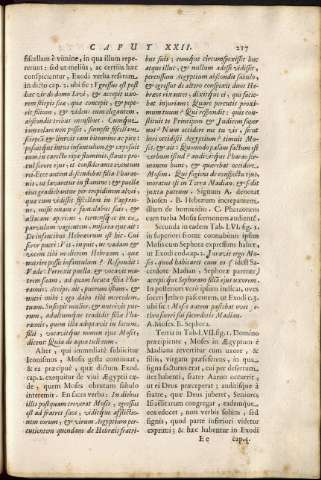 CAPUT XXII.
217
fiscellam è vimine, in qua illum repe-
rerunt: sed ut melius, ac certius hæc
conspiciuntur, Exodi verba referam
in dicto cap. 2. ubi sic: Egressus est post
hæc vir de domo Levi, & accepit uxo-
rem stirpis suæ, quæ concepit, & pepe-
rit filium, & videns eum elegantem,
abscondit tribus mensibus. Cumque
jam celare non posset, sumpsit fiscellam
scirpeam, & linivit eam bitumine ac pice:
posuitque intus infantulum, & exposuit
eum in carecto ripæ fluminis, stante pro-
cul sorore ejus, & considerante eventum
rei. Ecce autem descendebat filia Phara-
onis, ut lavaretur in flumine: & puellæ
ejus gradiebantur per crepidinem alvei,
quæ cum vidisset fiscellam in Papyrio-
ne, misit unam è famulabus suis, & 
allatam aperiens, cernensque in ea
parvulum vagientem, miserta ejus ait:
De infantibus Hebræorum est hic. Cui
soror pueri: Vis, inquit, ut vadam &
vocem tibi mulierem Hebræam, quæ
nutrire possit infantulum? Respondit:
Vade: Perrexit puella, & vocavit ma-
trem suam, ad quam locuta filia Pha-
raonis. Accipe, ait, puerum istum, &
nutri mihi: ego dabo tibi mercedem
tuam. Suscepit mulier, & nutrivit pue-
rum, adultumque tradidit filiæ Phara-
onis, quem illa adoptavit in locum
filii, vocavitque nomen ejus Moses,
dicens: Quia de aqua tuli eum.
Alter, qui immediatè subsequitur
Moses gesta continuat,
& ea præcipuè, quæ dictum Exod.
cap. 2. exequitur de viro Ægyptii cæ-
de, quem Moses obrutum sabulo
interemit. En sacra verba: In diebus
illis postquam creverat Moses, egressus
est ad fratres suos, viditque afflictio-
nem eorum, & virum Ægyptium per-
cutientem quendam de Hebræis fratri-
bus suis; cumque circumspexisset huc
atque illuc, & nullum adesse vidisset,
percussum Ægyptium abscondit sabulo,
& egressus die altero conspexit duos He-
bræos rixantes, dixitque ei, qui facie-
bat injuriam: Quare percutis proxi-
mum tuum? Qui respondit: quis con-
stituit te Principem & Judicem super
nos? Num occidere me tu vis, sicut
heri occidisti Ægyptium? timuit Mo-
ses, & ait: Quomodo palam factum est
verbum istud? audivitque Pharao ser-
monem hunc, & quærebat occidere
Mosen. Qui fugiens de conspectu ejus,
moratus est in Terra Madian, & sedit
juxta puteum. Signum A. denotat
Mosen. B. Hebæum increpantem
illum de homicidio. C. Pharaonem
cum turba Mosis sermonem audientē.
Secunda in eadem Tab. LVI. fig. 2.
in superiori fronte connubium ipsum
Mosis cum Sephora expressum habet,
ac Exodi eod. cap. 2. Juravit ergo Mo-
ses, quod habitaret cum eo (idest Sa-
cedote Madian, Sephoræ parente)
accepitque Sephoram filiã ejus uxorem.
In posteriori verò ipsius indicat, oves
soceri Jethro pascentem, ut Exodi c. 3.
ubi sic: Moses autem pascebat oves,
A. Moses. E. Sephora.
Tertia in Tab. LVII. fig. 1. Domino
præcipiente, Moses in Ægyptum è
Madiana revertitur cum uxore, &
filiis, virgam præseferens, in qua
signa facturus erat, coi per desertum,
ubi habenti, frater Aaron occurrit,
uti ei Deus præceperat; audissetque à
fratre, quæ Deus jubsset, Seniores
Israëlitarum congregat, eademque
eos edocet, non verbis solùm, sed
signis, quod parte inferiori videtur
exprimi; & hæc habentur in Exodi
Ee
cap. 4.